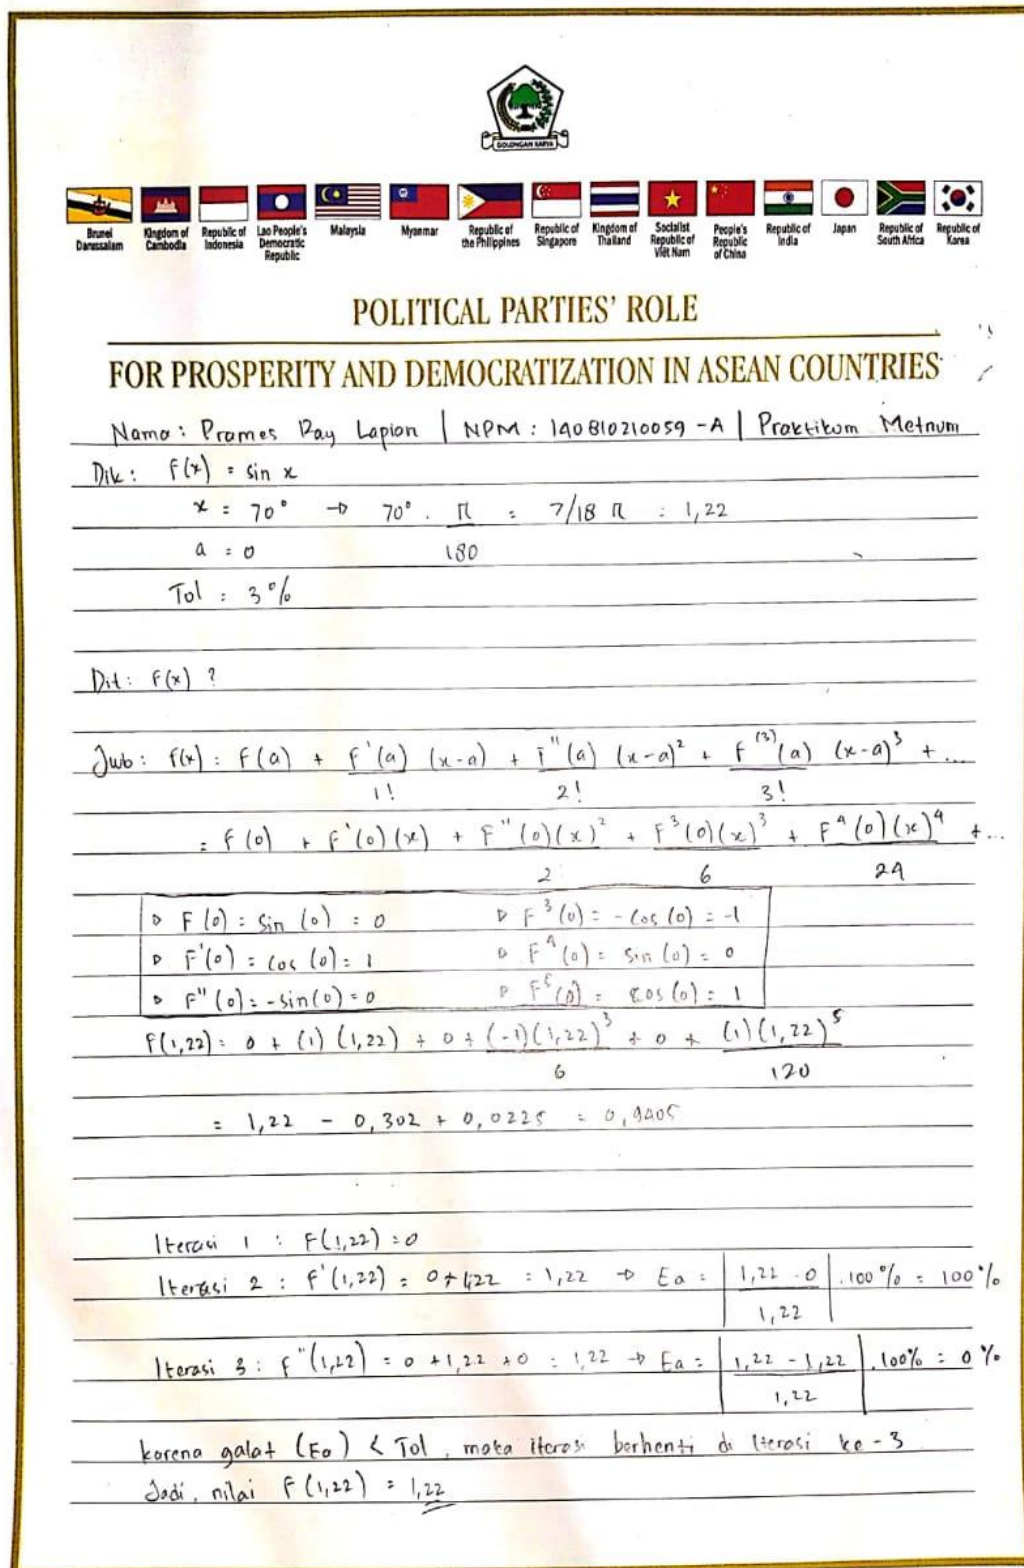 GOLONGAN KARYA
Brunei Darussalam
Kingdom of Cambodia
Republic of Indonesia
Lao People's Democratic Republic
Malaysia
Myanmar
Republic of the Philippines
Republic of Singapore
Kingdom of Thailand
Socialist Republic of Việt Nam
People's Republic of China
Republic of India
Japan
Republic of South Africa
Republic of Korea
POLITICAL PARTIES' ROLE
FOR PROSPERITY AND DEMOCRATIZATION IN ASEAN COUNTRIES
Nama : Prames Ray Lapian | NPM : 140810210059 - A | Praktikum Metnum
Dik : f(x) = sin x
x = 70° → 70° . π/180 = 7/18 π = 1,22
a = 0
Tol = 3%
Dit : f(x) ?
Jwb : f(x) = f(a) + f'(a)/1! (x-a) + f''(a)/2! (x-a)² + f⁽³⁾(a)/3! (x-a)³ + ...
= f(0) + f'(0)(x) + f''(0)(x)²/2 + f³(0)(x)³/6 + f⁴(0)(x)⁴/24 + ...
▷ f(0) = sin (0) = 0 ▷ f³(0) = -cos (0) = -1
▷ f'(0) = cos (0) = 1 ▷ f⁴(0) = sin (0) = 0
▷ f''(0) = -sin(0) = 0 ▷ f⁵(0) = cos (0) = 1
f(1,22) = 0 + (1)(1,22) + 0 + (-1)(1,22)³/6 + 0 + (1)(1,22)⁵/120
= 1,22 - 0,302 + 0,0225 = 0,9405
Iterasi 1 : f(1,22) = 0
Iterasi 2 : f'(1,22) = 0 + 1,22 = 1,22 → Ea = |1,22 - 0/1,22| . 100% = 100%
Iterasi 3 : f''(1,22) = 0 + 1,22 + 0 = 1,22 → Ea = |1,22 - 1,22/1,22| . 100% = 0%
karena galat (Ea) < Tol, maka iterasi berhenti di iterasi ke-3
Jadi, nilai f(1,22) = 1,22